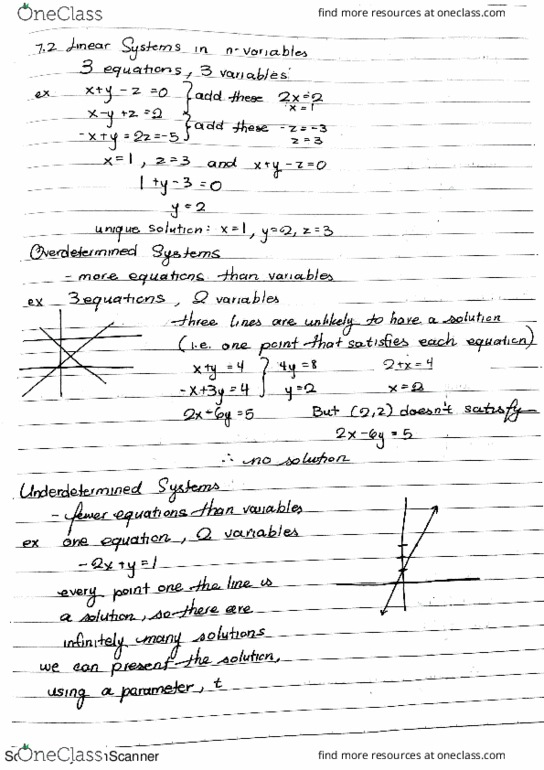 OneClass find more resources at oneclass.com
7.2 Linear Systems in n-variables
3 equations, 3 variables:
ex x+y-z=0 } add these 2x=2
x=1
x-y+z=2
-x+y=2z=-5 } add these -z=-3
z=3
x=1, z=3 and x+y-z=0
1+y-3=0
y=2
unique solution: x=1, y=2, z=3
Overdetermined Systems
- more equations than variables
ex 3 equations, 2 variables
three lines are unlikely to have a solution
(i.e. one point that satisfies each equation)
x+y=4 } 4y=8 2+x=4
-x+3y=4 y=2 x=2
2x-6y=5 But (2,2) doesn't satisfy
2x-6y=5
∴ no solution
Underdetermined Systems
- fewer equations than variables
ex one equation, 2 variables
-2x+y=1
every point one the line is
a solution, so there are
infinitely many solutions
we can present the solution,
using a parameter, t
OneClass Scanner find more resources at oneclass.com